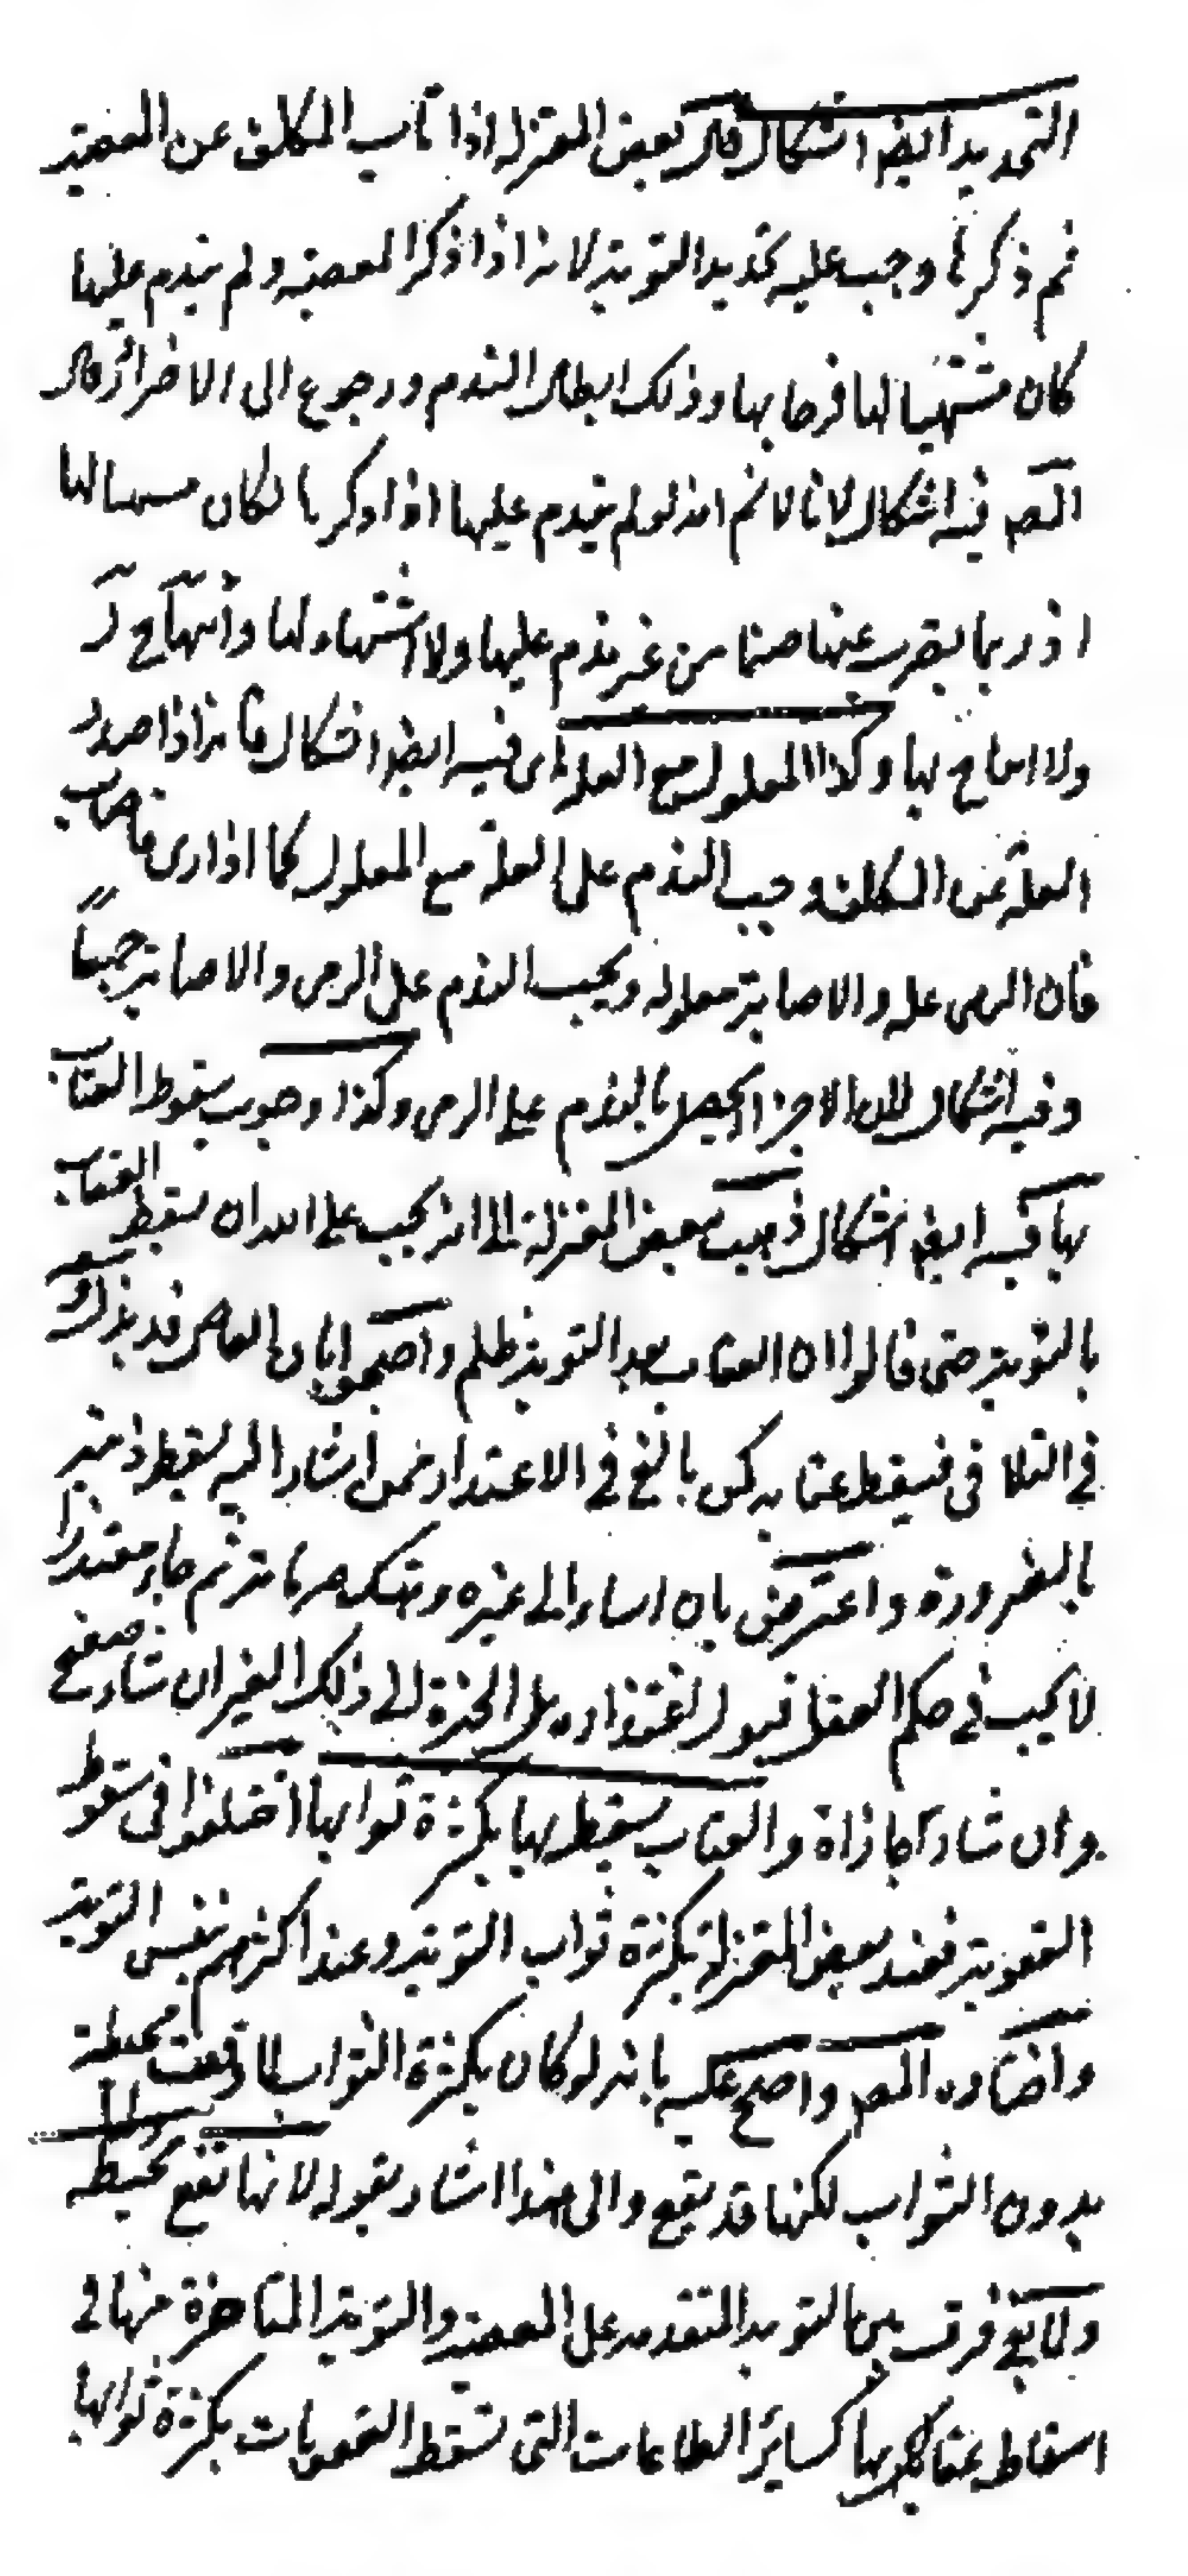 التجديد ايضا اشكال قال بعض المعتزلة اذا تاب المكلف عن المعصية
ثم ذكرها وجب عليه تجديد التوبة لانه اذا ذكر المعصية ولم يندم عليها
كان مشتهيا لها فرحا بها وذلك ابطال الندم ورجوع الى الاصرار قال
المص فيه اشكال لانا لا نم انه لو لم يندم عليها اذا ذكرها لكان مشتهيا لها
اذ ربما يضرب عنها صفحا من غير ندم عليها ولا اشتهاء لها وابتهاج
ولا ابتهاج بها وكذا المعلول مع العلة اى فيه ايضا اشكال فانه اذا صدر
العلة عن المكلف وجب الندم على العلة مع المعلول كما اذا رمى فاصاب
فان الرمى علة والاصابة معلوله ويجب الندم على الرمى والاصابة جميعاً
وفيه اشكال الاجزاء يحصل بالندم على الرمى وكذا وجوب سقوط العقاب
بها فيه ايضا اشكال ذهب بعض المعتزلة الى انه يجب على الله ان يسقط العقاب
بالتوبة حتى قالوا ان العقاب بعد التوبة ظلم واحتجوا بان العاصى قد بذل وسعه
فى التلافى فيسقط عقابه كمن بالغ فى الاعتذار فمن اشار اليه يسقط ذمته
بالضرورة واعترض بان من اساء الى غيره وهتك حرماته ثم جاء معتذرا
لا يجب فى حكم العقل قبول اعتذاره بل الخيرة الى ذلك الغير ان شاء صفح
وان شاء جازاه والعقاب يسقط بها بكثرة ثوابها اختلفوا فى سقوط
العقوبة فعند بعض المعتزلة بكثرة ثواب التوبة وعند اكثرهم بنفس التوبة
واختاره المص واحتج عليه بانه لو كان بكثرة الثواب لما وقعت محبطة
بدون الثواب لكنها قد يقع والى هذا اشار بقوله لانها تقع محبطة
ولا يبقى فرق بين التوبة المتقدمة على المعصية والتوبة المتاخرة عنها فى
اسقاط عقابها كسائر الطاعات التى تسقط العقوبات بكثرة ثوابها